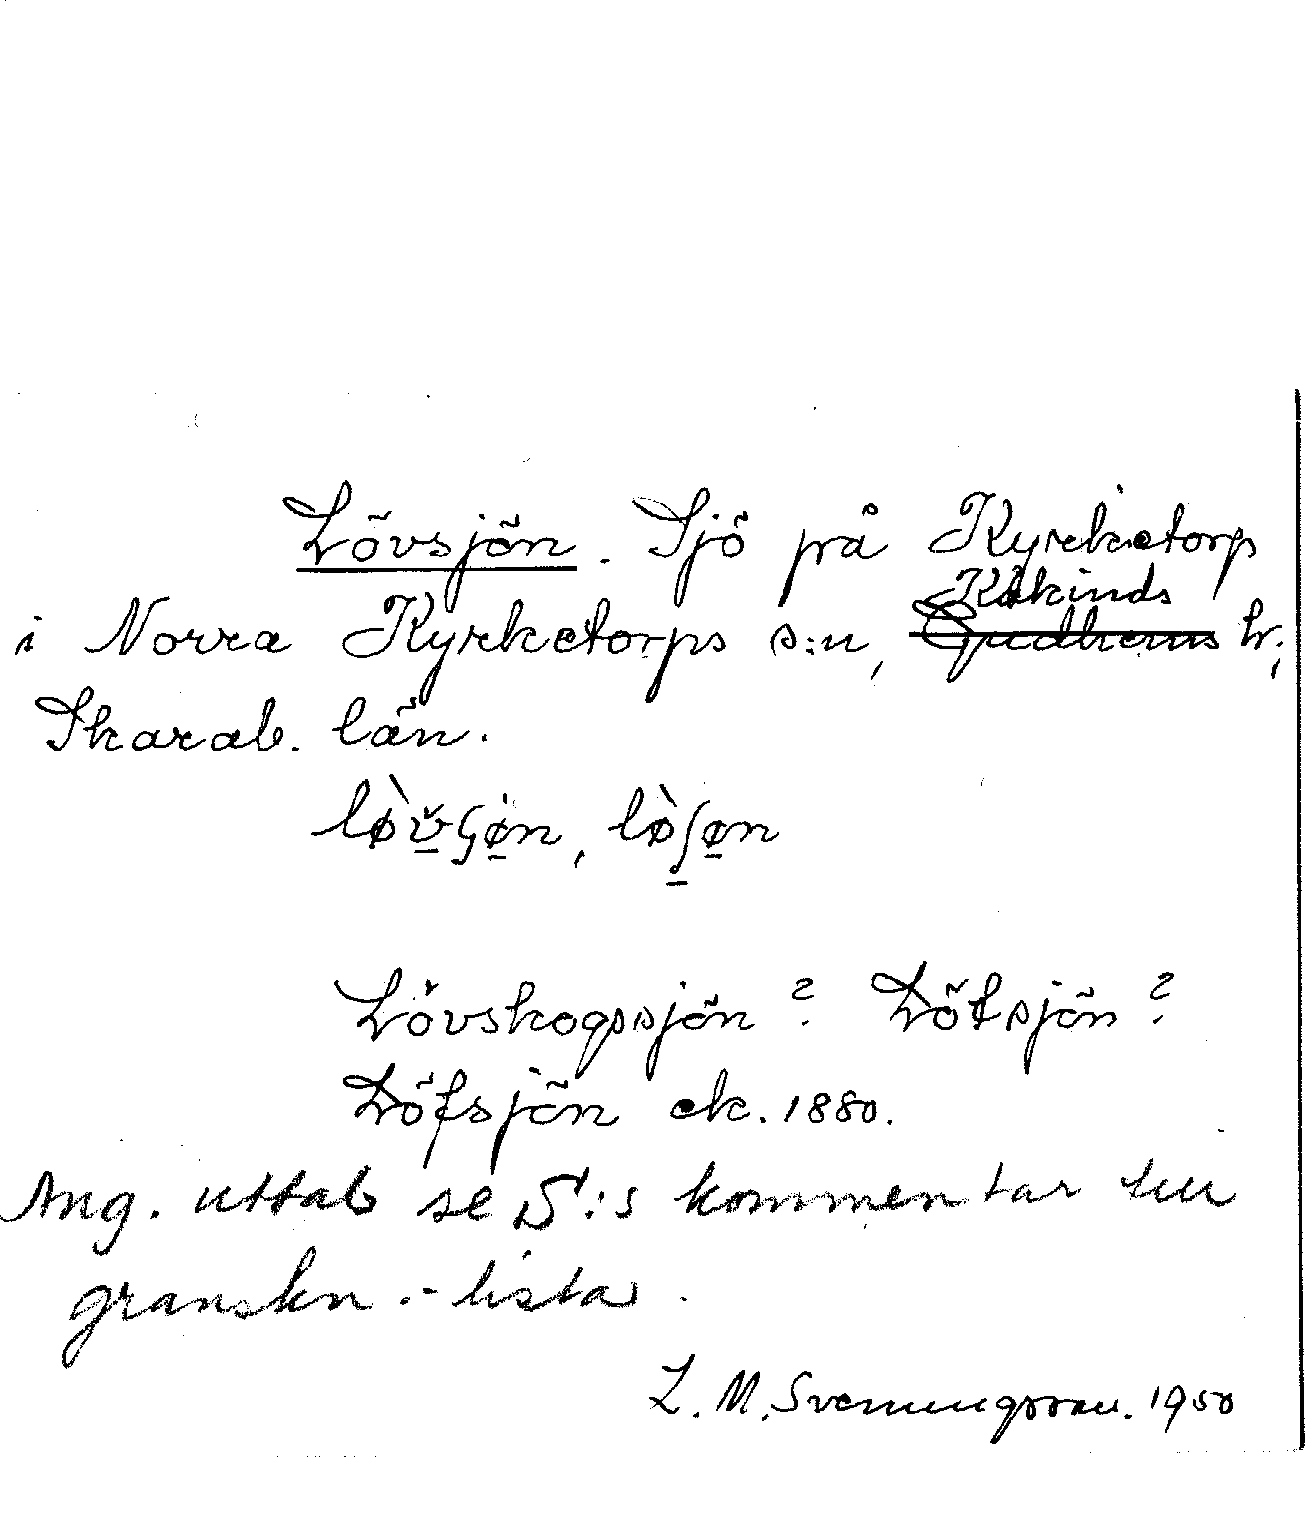 Lövsjön. Sjö på Kyrketorp
Kåkinds
i Norra Kyrketorps s:n, Gudhems hr.,
Skarab. län.
lø̀v̌ʃøn, lø̀ʃøn
Lövskogssjön? Lötsjön?
Löfsjön ek. 1880.
Ang. uttal se S:s kommentar till
granskn.-lista.
L. M. Svenungsson. 1950